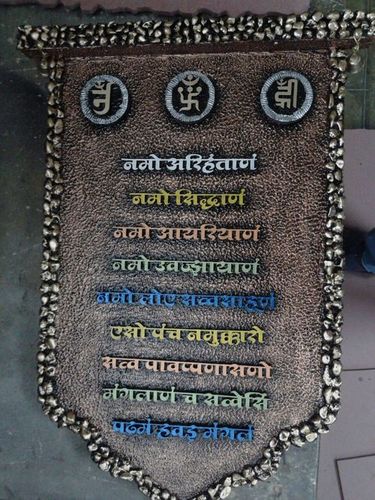 नमो अरिहंताणं
नमो सिद्धाणं
नमो आयरियाणं
नमो उवज्झायाणं
नमो लोए सव्वसाहुणं
एसो पंच नमुक्कारो
सव्व पावप्पणासणो
मंगलाणं च सव्वेसिं
पढमं हवइ मंगलं